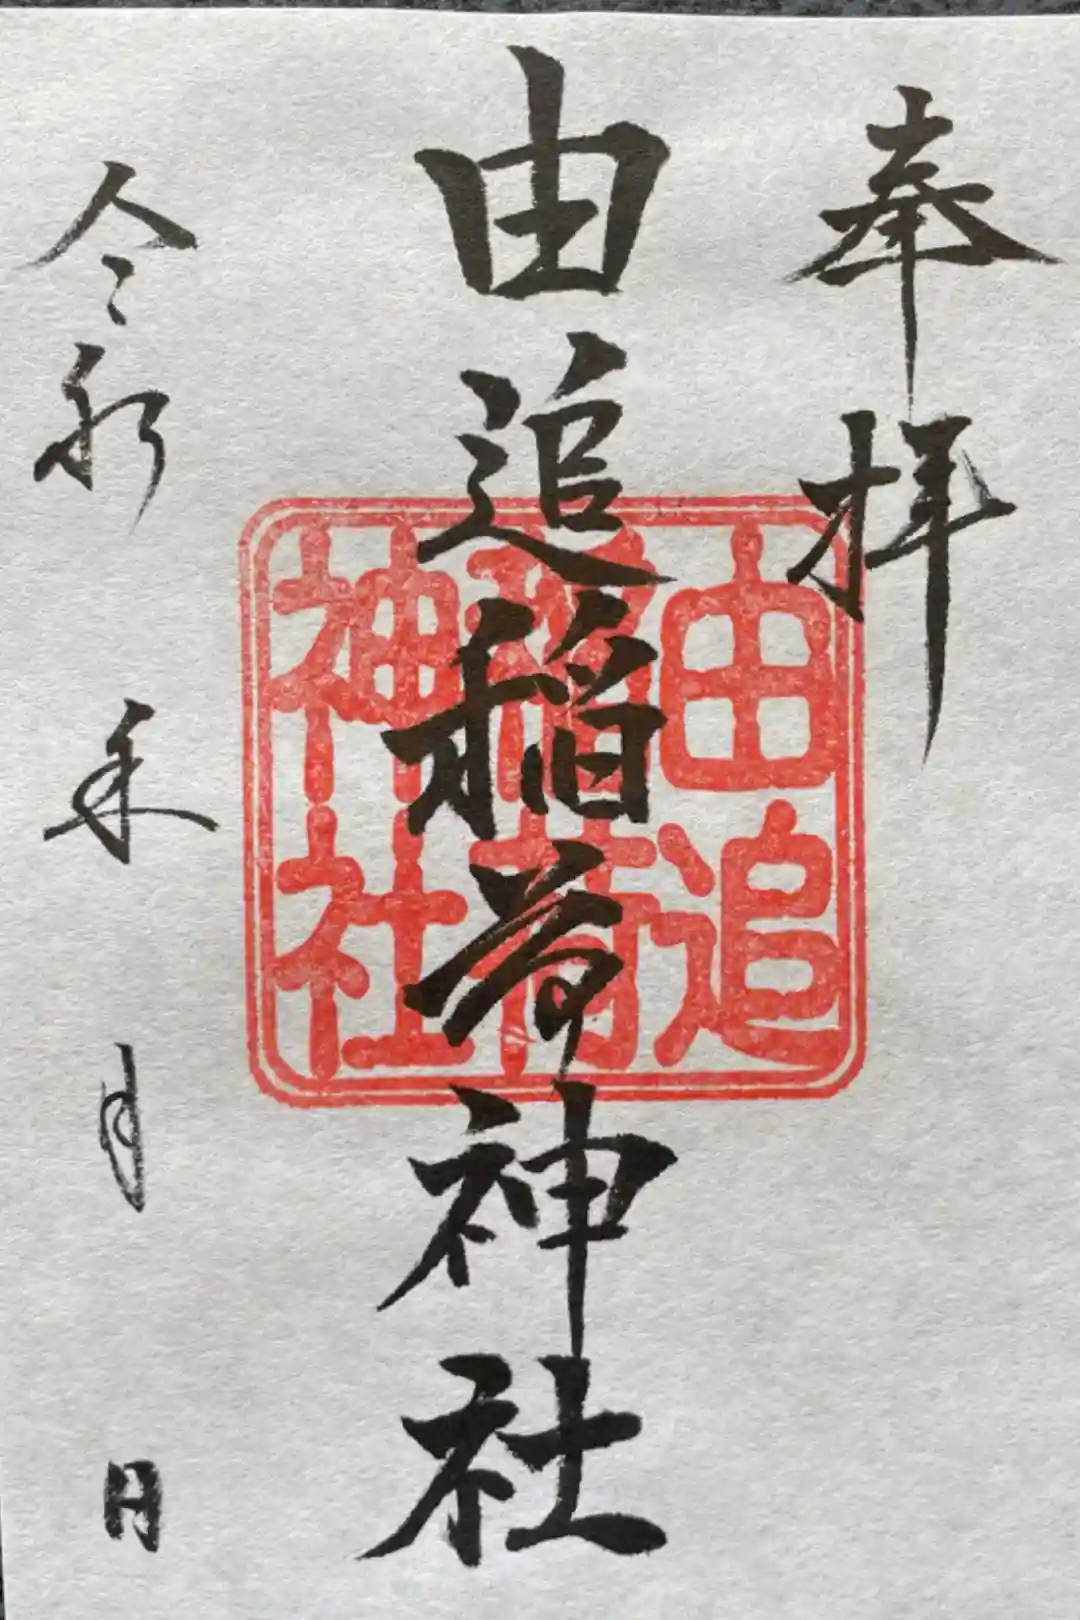 奉拝
由追稲荷神社
由追
稲荷
神社
令和 年 月 日